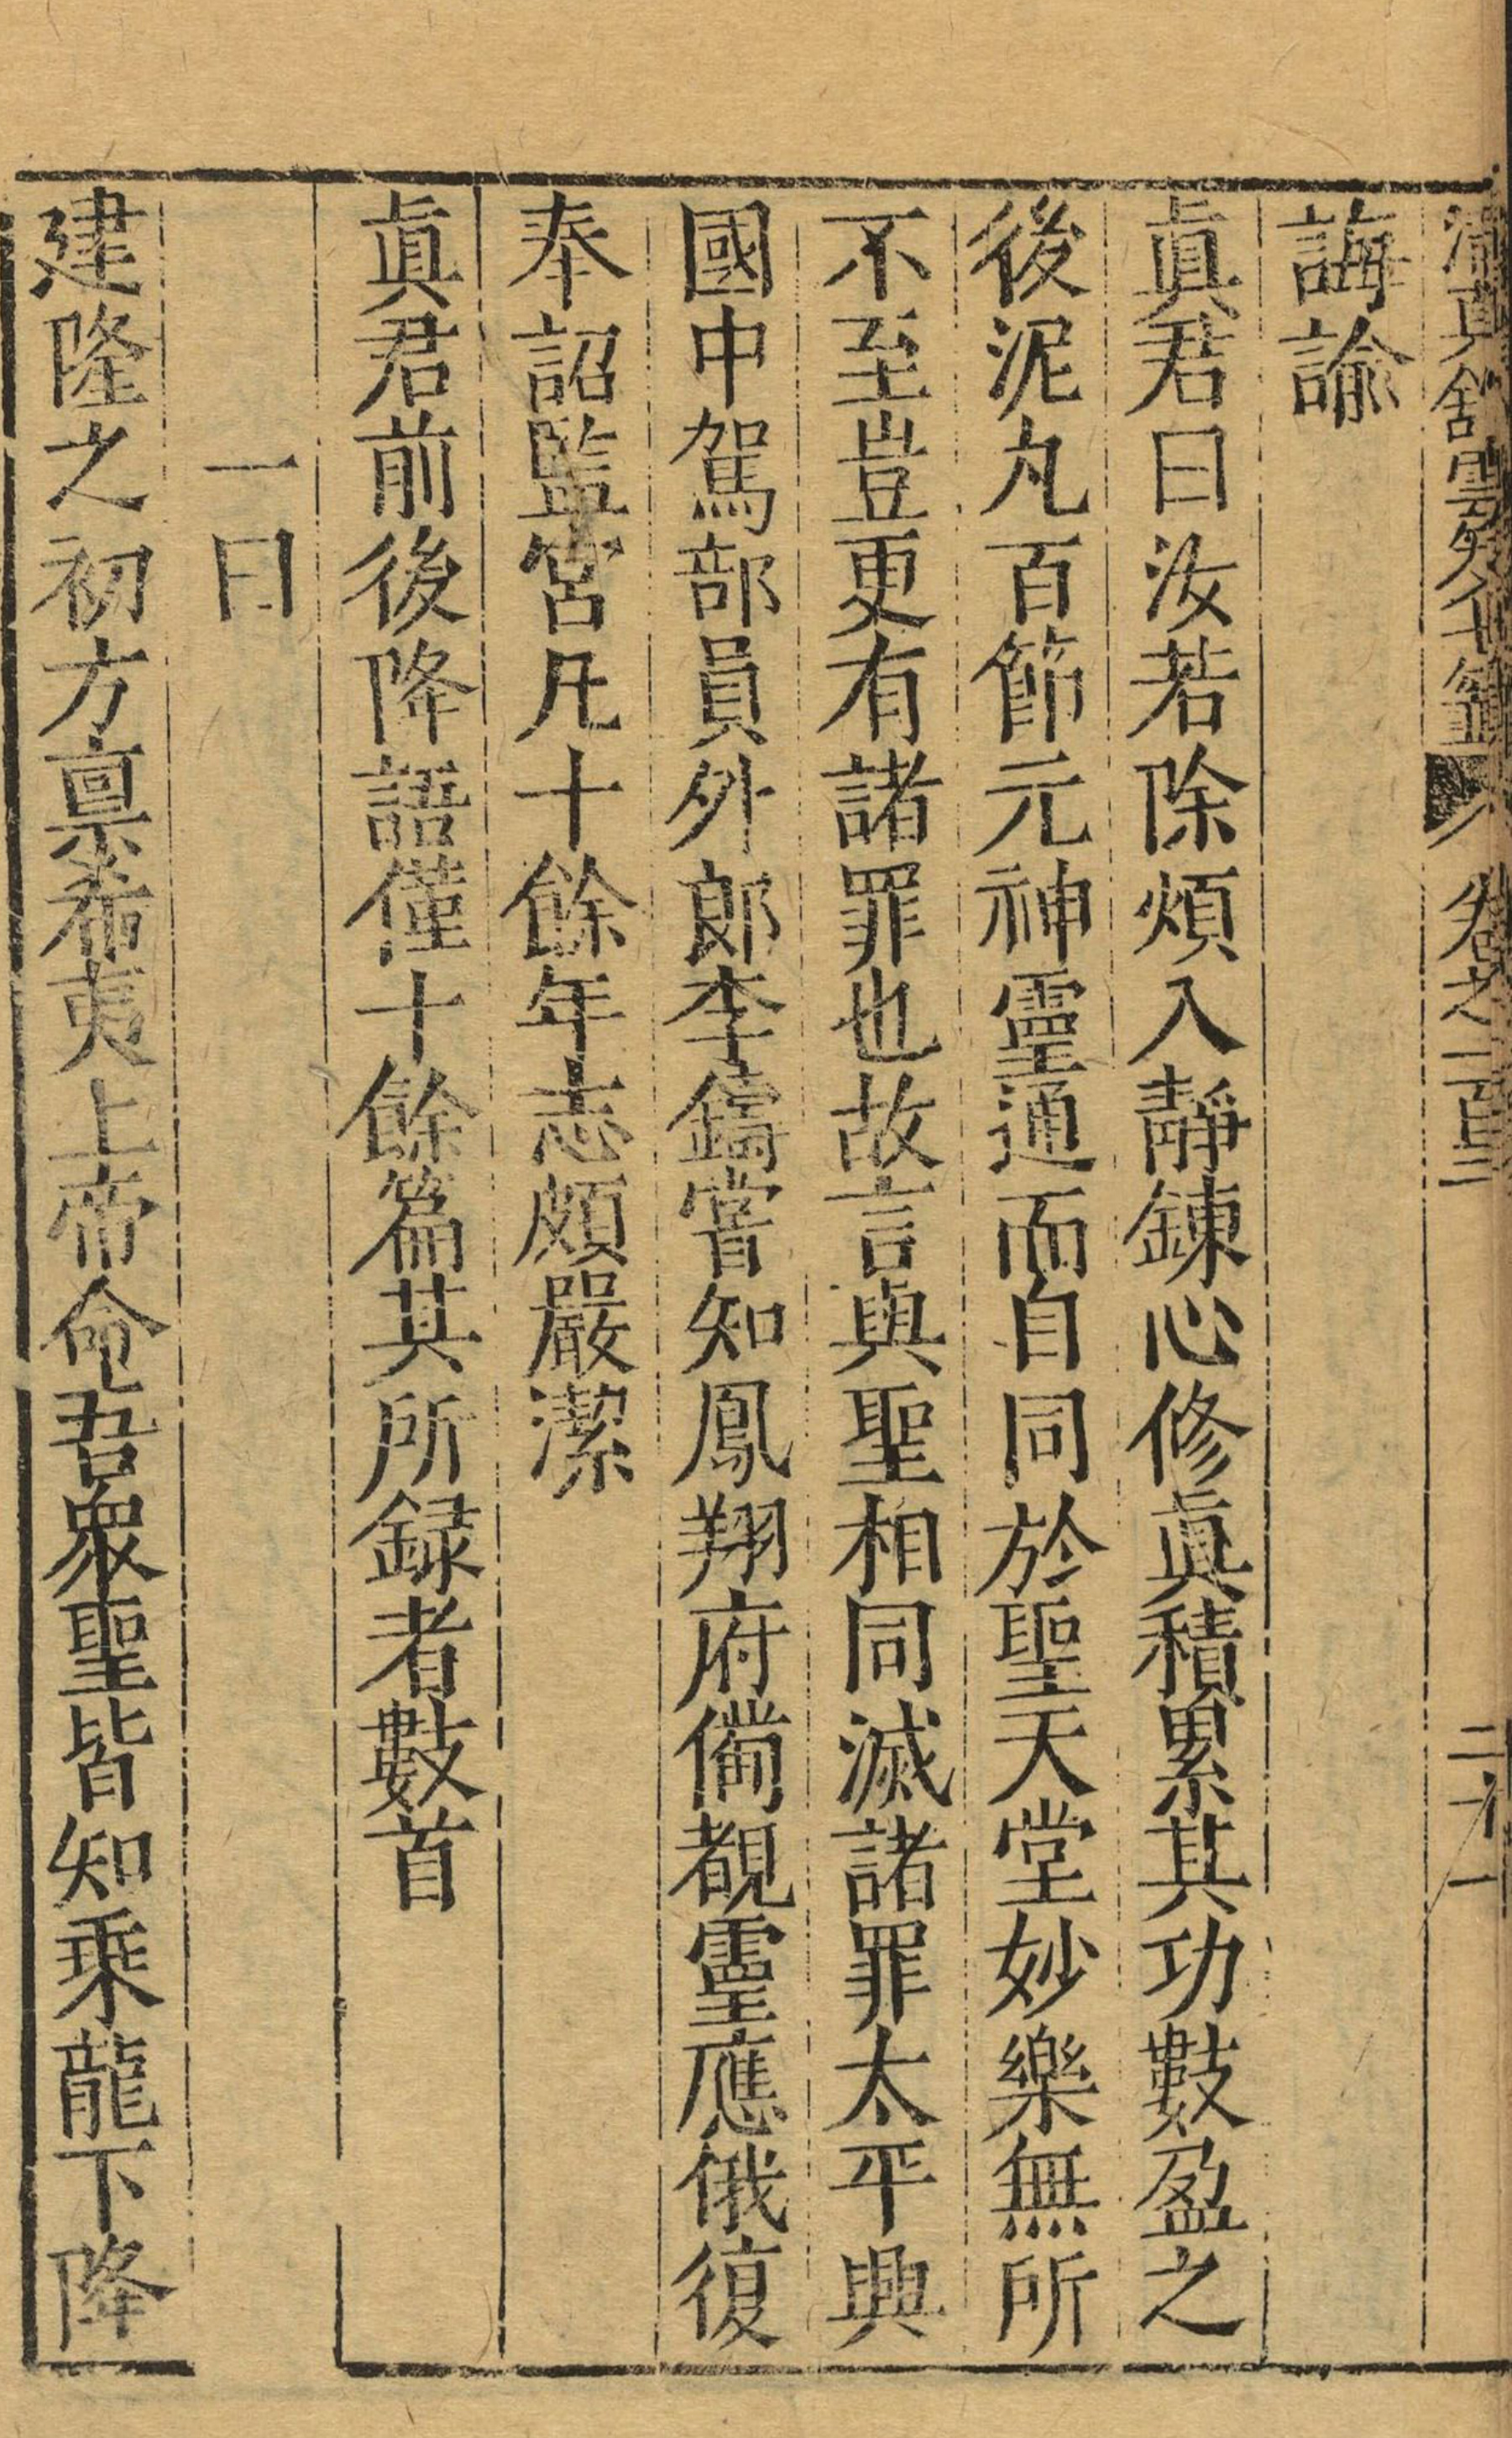 誨諭
眞君曰汝若除煩入靜錬心修眞積累其功數盈之
後泥丸百節元神靈通而自同於聖天堂妙樂無所
不至豈更有諸罪也故言與聖相同滅諸罪太平興
國中駕部員外郎李鑄嘗知鳳翔府備覩靈應俄復
奉詔監宮凡十餘年志頗嚴潔
眞君前後降語僅十餘篇其所録者數首
一曰
建隆之初方稟希夷上帝命吾衆聖皆知乘龍下降